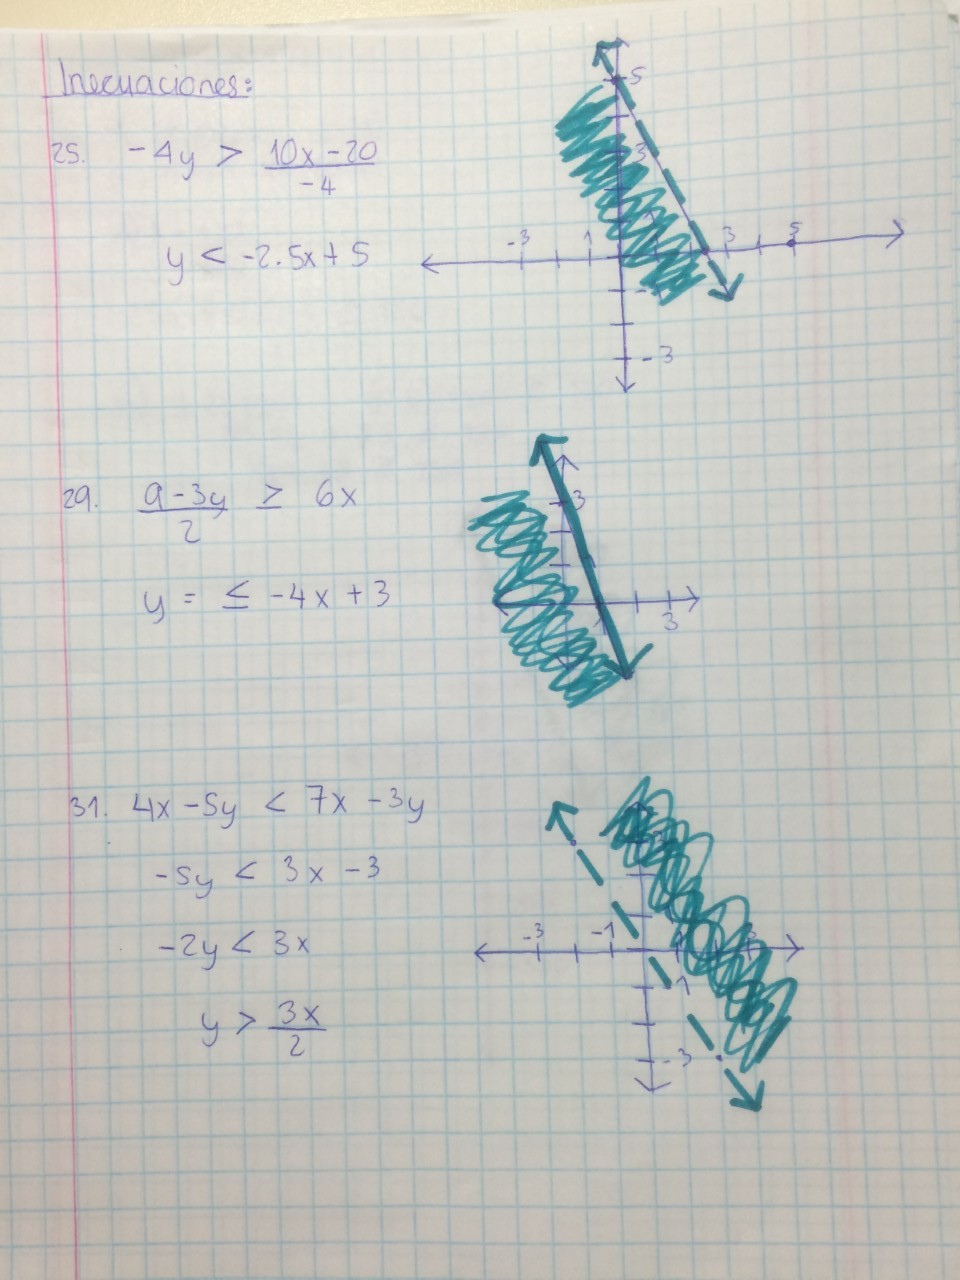 Inecuaciones:
25. -4y > 10x-20
-4
y < -2.5x+5
5
3
-3 1 3 5
-3
29. 9-3y ≥ 6x
2
y = ≤ -4x +3
3
3
31. 4x -5y < 7x -3y
-5y < 3x -3
-2y < 3x
y > 3x
2
-3 -1 3
-3